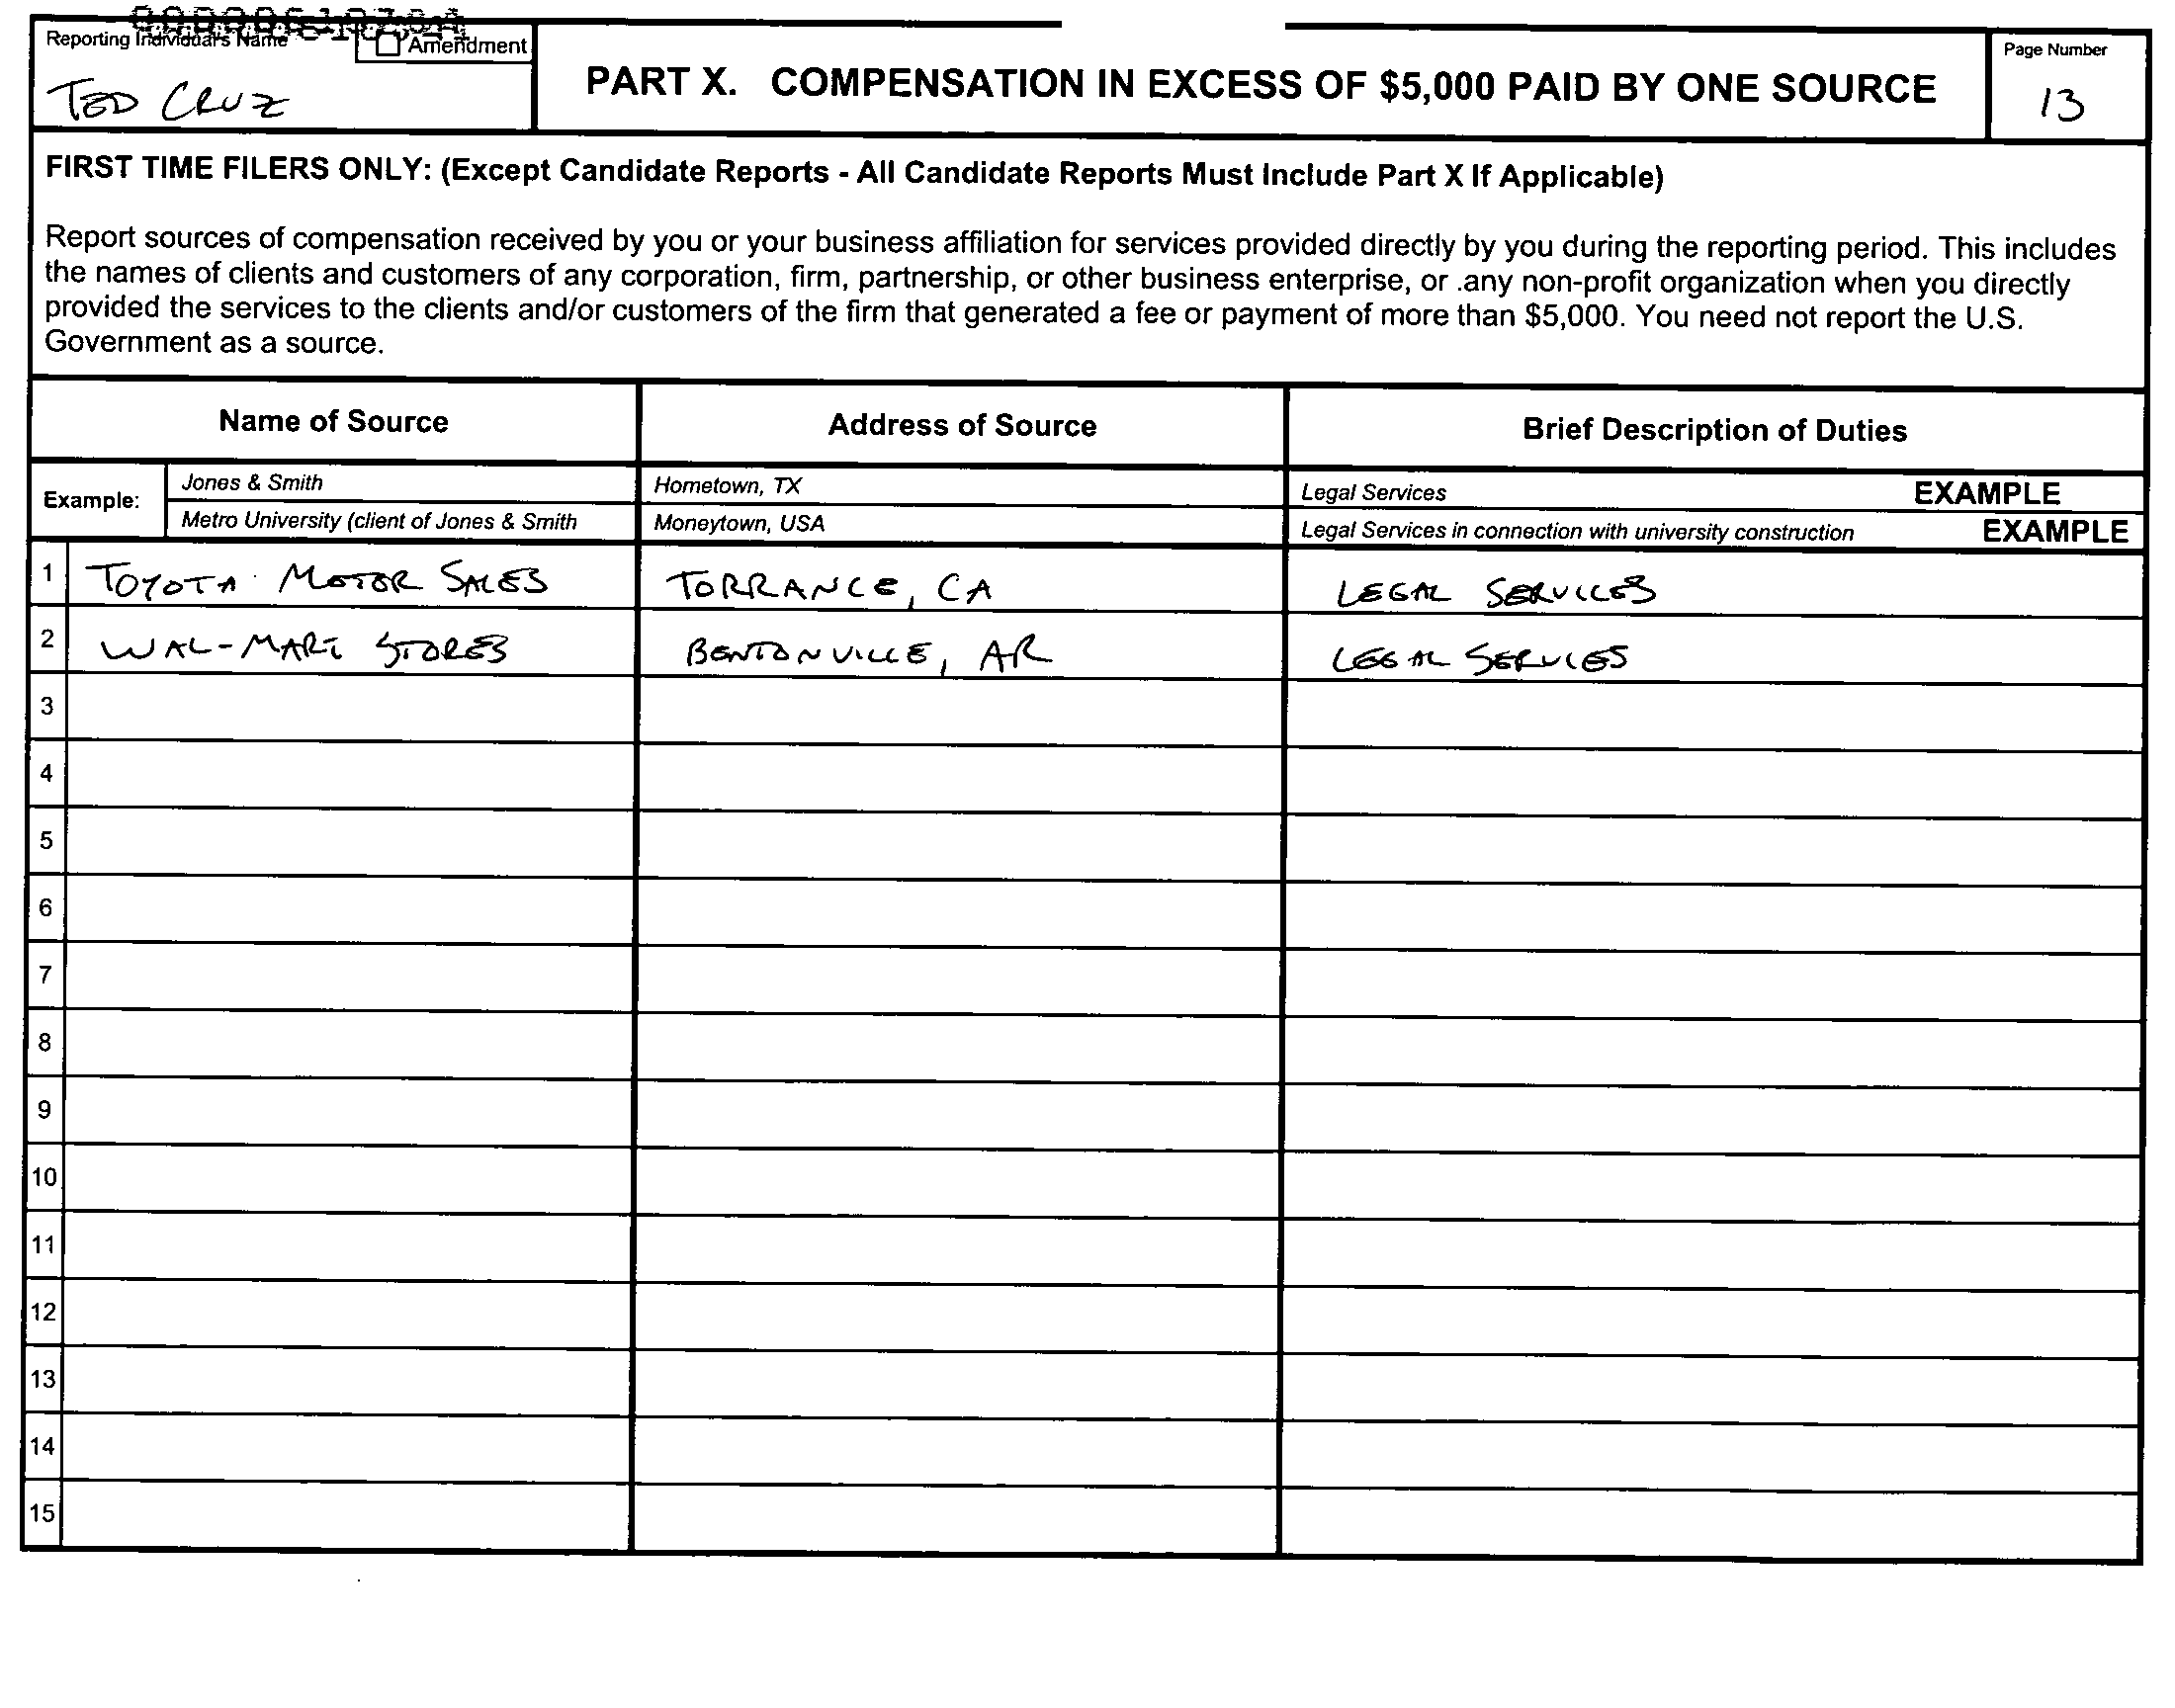 Reporting Individual's Name
Amendment
TED CRUZ
PART X. COMPENSATION IN EXCESS OF $5,000 PAID BY ONE SOURCE
Page Number
13
FIRST TIME FILERS ONLY: (Except Candidate Reports - All Candidate Reports Must Include Part X If Applicable)
Report sources of compensation received by you or your business affiliation for services provided directly by you during the reporting period. This includes
the names of clients and customers of any corporation, firm, partnership, or other business enterprise, or .any non-profit organization when you directly
provided the services to the clients and/or customers of the firm that generated a fee or payment of more than $5,000. You need not report the U.S.
Government as a source.
Name of Source Address of Source Brief Description of Duties
Example: Jones & Smith Hometown, TX Legal Services EXAMPLE
Metro University (client of Jones & Smith Moneytown, USA Legal Services in connection with university construction EXAMPLE
1 TOYOTA MOTOR SALES TORRANCE, CA LEGAL SERVICES
2 WAL-MART STORES BENTONVILLE, AR LEGAL SERVICES
3
4
5
6
7
8
9
10
11
12
13
14
15